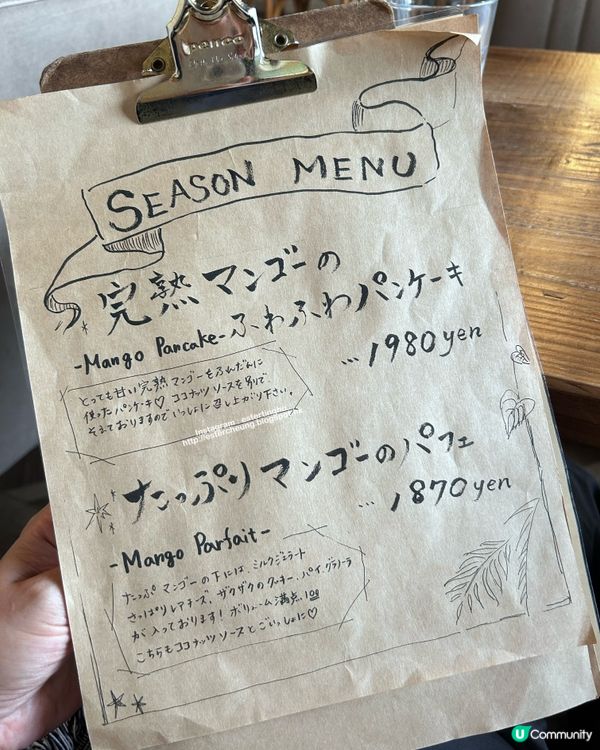 SEASON MENU
完熟マンゴーの
-Mango Pancake- ふわふわパンケーキ
... 1980yen
とっても甘い完熟マンゴーをふんだんに
使ったパンケーキ♡ ココナッツソースを別で
そえておりますのでいっしょに召し上がり下さい。
Instagram estertinghu
http://estercheung.blogspot
たっぷりマンゴーのパフェ
... 1870yen
-Mango Parfait-
たっぷマンゴーの下には、ミルクジェラート
さっぱりレアチーズ、ザクザクのクッキー、パイ、グラノーラ
が入っております! ボリューム満点
こちらもココナッツソースとごいっしょに♡
U Community